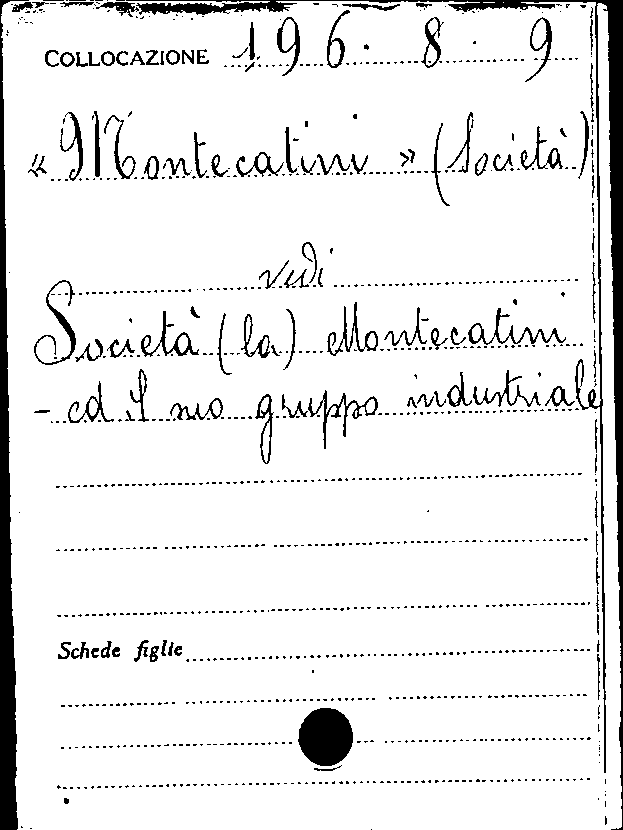 COLLOCAZIONE 196. 8. 9
« Montecatini » (Società)
vedi
Società (la) Montecatini
- ed il suo gruppo industriale
Schede figlie